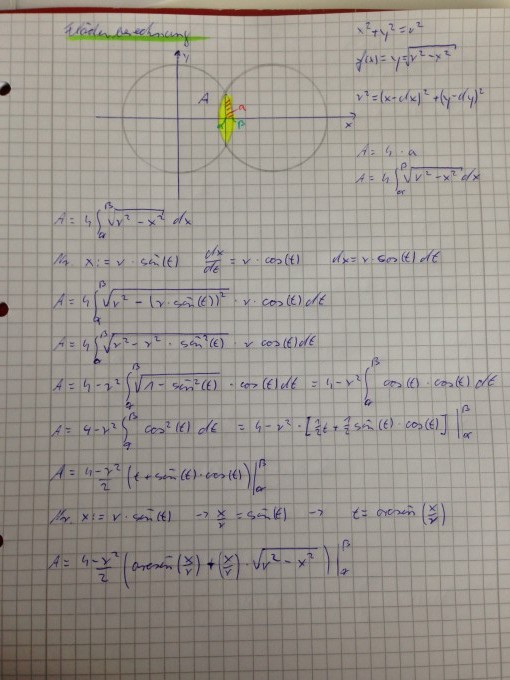 Flächenberechnung
x² + y² = r²
f(x) = y = √(r² - x²)
r² = (x-dx)² + (y-dy)²
y
A
a
α
β
x
A = 4 · a
A = 4 ∫_α^β √(r² - x²) dx
A = 4 ∫_α^β √(r² - x²) dx
Nr. x := r · sin(t)   dx/dt = r · cos(t)   dx = r · cos(t) dt
A = 4 ∫_α^β √(r² - (r · sin(t))²) · r · cos(t) dt
A = 4 ∫_α^β √(r² - r² · sin²(t)) · r cos(t) dt
A = 4-r² ∫_α^β √(1 - sin²(t)) · cos(t) dt = 4-r² ∫_α^β cos(t) · cos(t) dt
A = 4-r² ∫_α^β cos²(t) dt = 4-r² · [½t + ½ sin(t) · cos(t)] |_α^β
A = 4-r²/2 (t + sin(t) · cos(t)) |_α^β
Nr. x := r · sin(t) → x/r = sin(t) → t = arcsin(x/r)
A = 4-r²/2 (arcsin(x/r) + (x/r) · √(r² - x²)) |_α^β